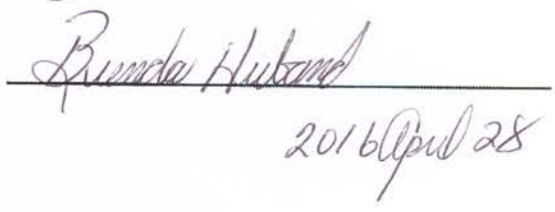 Brenda Huband
2016 April 28